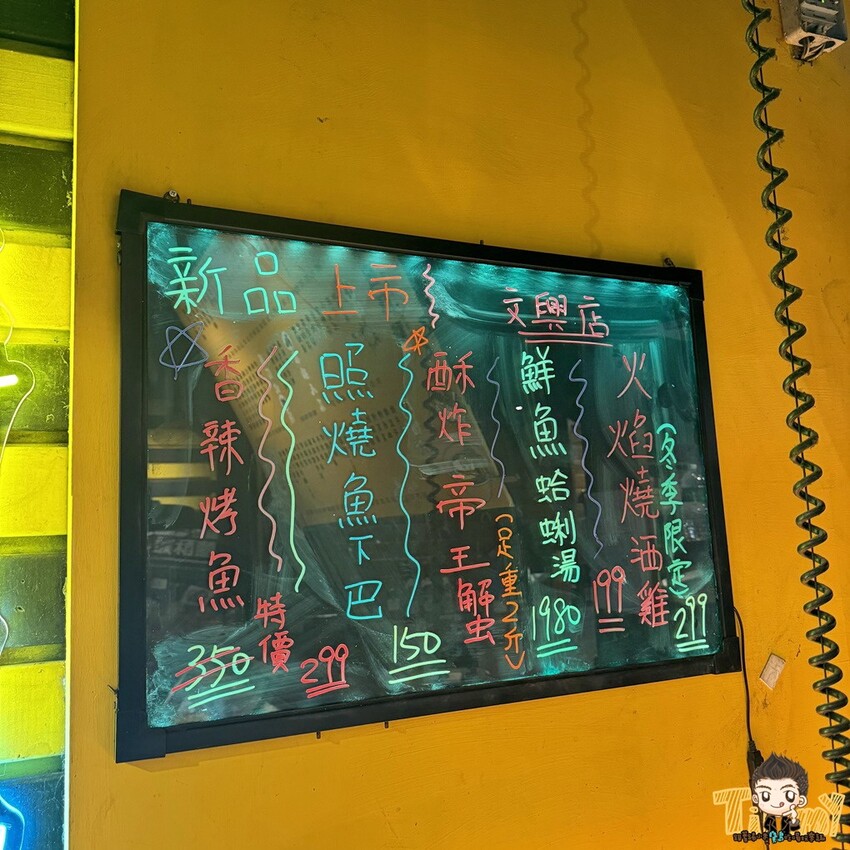 新品上市
文興店
香辣烤魚
350
特價
299
照燒魚下巴
150
酥炸帝王蟹
(足重2斤)
1980
鮮魚蛤蜊湯
199
火焰燒酒雞
(冬季限定)
299